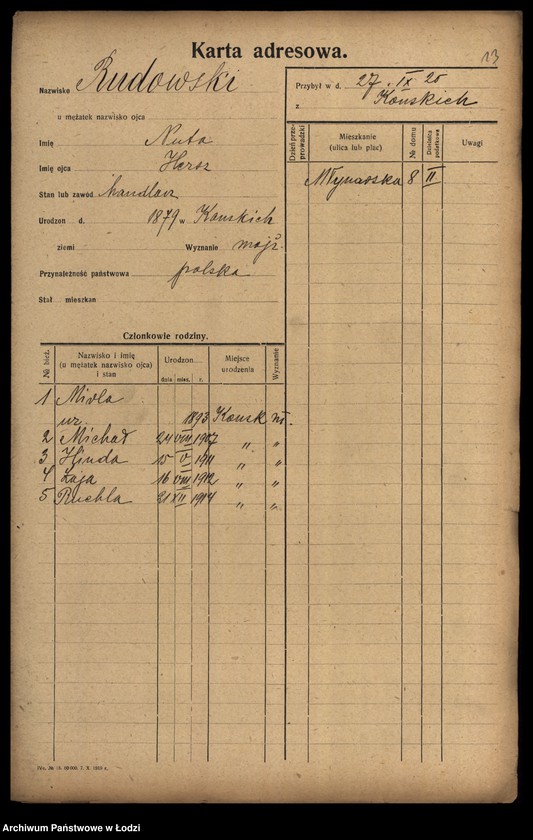 Karta adresowa.
13
Nazwisko Rudowski
u mężatek nazwisko ojca
Imię Nuta
Imię ojca Hersz
Stan lub zawód handlarz
Urodzon d. 1879 w Konskich
ziemi Wyznanie mojż.
Przynależność państwowa polska
Stał mieszkan
Przybył w d. 27. IX 20
z Konskich
Dzień przeprowadzki Mieszkanie (ulica lub plac) № domu Dzielnica podatkowa Uwagi
Młynarska 8 II
Członkowie rodziny.
№ bież. Nazwisko i imię (u mężatek nazwisko ojca) i stan Urodzon Miejsce urodzenia Wyznanie
dnia mies. r.
1 Mirla
ur. 1893 Konsk m.
2 Michał 24 VIII 1907 " "
3 Hinda 15 V 1911 " "
4 Łaja 16 VIII 1912 " "
5 Ruchla 21 XII 1914 " "
7. X. 1919 r.
Archiwum Państwowe w Łodzi